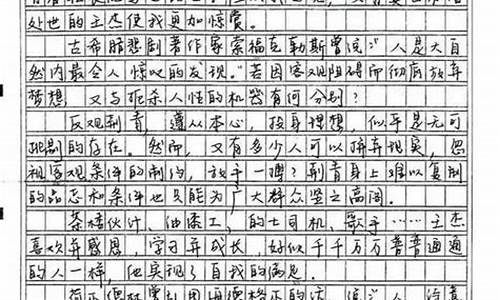 处世的王杰使我更加惊赏。
古希腊悲剧著作家索福克勒斯曾说：“人是大自
然内最令人惊叹的发现。”若因客观阻碍而彻底放弃
梦想，又与扼杀人性的机器有何分别？
反观荆青，遵从本心，投身理想，似乎是无可
挑剔的存在。然而，又有多少人可以降弃现实，忽
视客观条件的制约，放手一搏？荆青身上难以复制
的品志和条件也只能为广大群众竖立高阁。
茶楼伙计、油漆工、的士司机、歌手……王杰
喜欢并感恩，学习并成长，好似千千万万普普通通
的人一样，他实现了自我的满足。